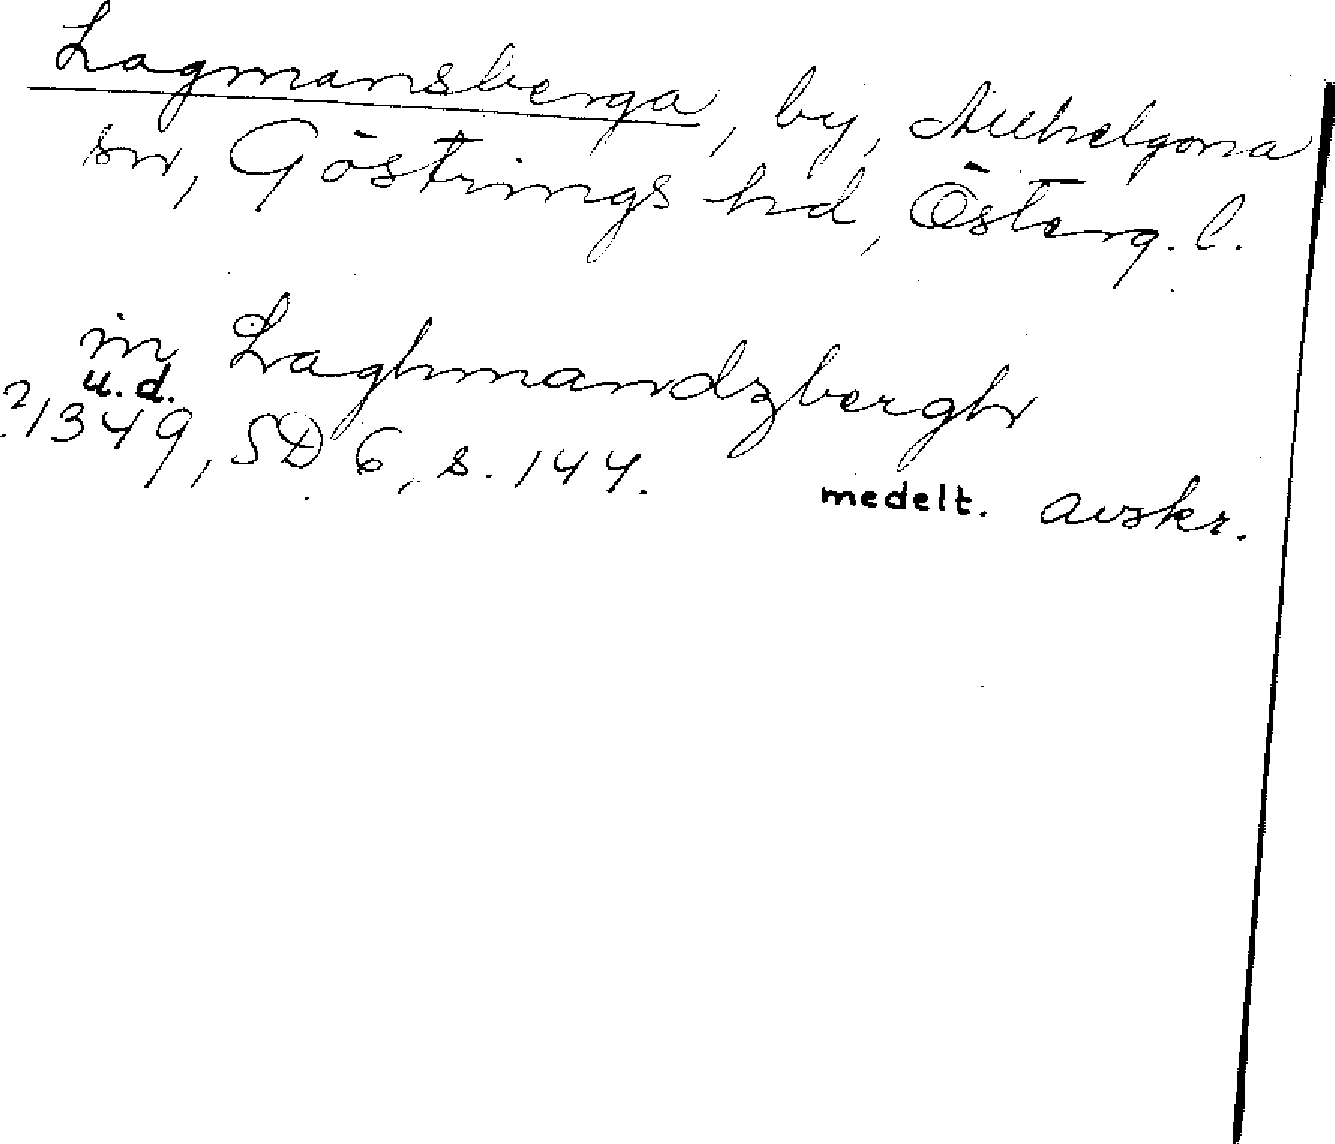 Lagmansberga, by, Allhelgona
sn, Göstrings hd, Österg. l.
in Laghmandzbergh
u.d.
?1349, SD 6, s. 144.
medelt. avskr.